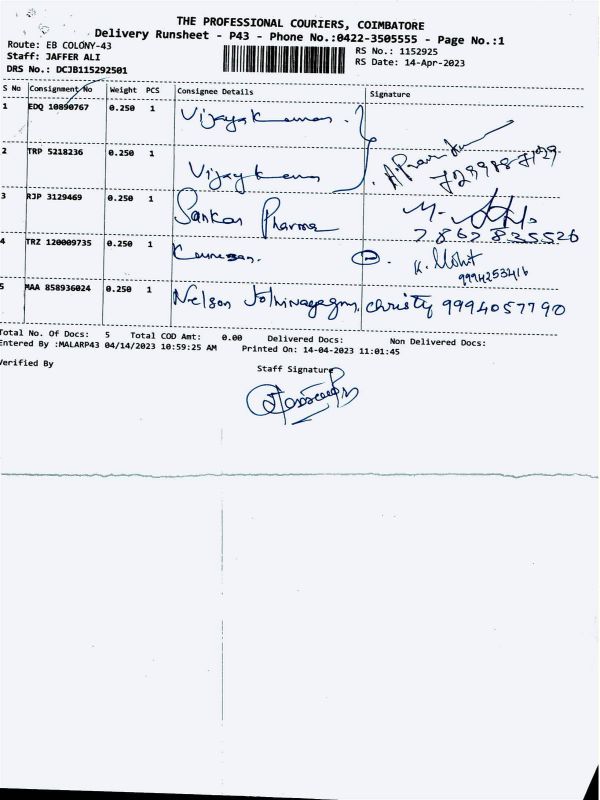 THE PROFESSIONAL COURIERS, COIMBATORE
Delivery Runsheet - P43 - Phone No.:0422-3505555 - Page No.:1
Route: EB COLONY-43
RS No.: 1152925
Staff: JAFFER ALI
RS Date: 14-Apr-2023
DRS No.: DCJB115292501
S No Consignment No Weight PCS Consignee Details Signature
1 EDQ 10890767 0.250 1 Vijayakumar
2 TRP 5218236 0.250 1 Vijaykumar
3 RJP 3129469 0.250 1 Sankar Pharma
7867835526
4 TRZ 120009735 0.250 1 K. Mohit
9994253416
5 MAA 858936024 0.250 1 Nelson christy 9994057790
Total No. Of Docs: 5 Total COD Amt: 0.00 Delivered Docs: Non Delivered Docs:
Entered By :MALARP43 04/14/2023 10:59:25 AM Printed On: 14-04-2023 11:01:45
Verified By
Staff Signature